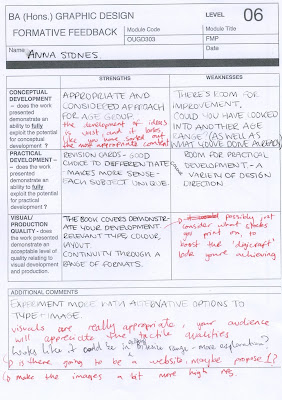 BA (Hons.) GRAPHIC DESIGN
FORMATIVE FEEDBACK
LEVEL
06
Module Code
Module Title
OUGD303
FMP
Name
ANNA STONES
Date
STRENGTHS
WEAKNESSES
CONCEPTUAL
DEVELOPMENT
– does the work
presented demonstrate an
ability to fully exploit the
potential for conceptual
development ?
APPROPRIATE AND
CONSIDERED APPROACH
FOR AGE GROUP.
the development of ideas
is vast, and it looks
like you have sorted out
the most appropriate concept
THERE'S ROOM FOR
IMPROVEMENT.
COULD YOU HAVE LOOKED
INTO ANOTHER AGE
RANGE (AS WELL AS
WHAT YOU'VE DONE ALREADY)
PRACTICAL
DEVELOPMENT – does
the work presented
demonstrate an ability to
fully exploit the potential
for practical
development ?
REVISION CARDS - GOOD
CHOICE TO DIFFERENTIATE
- MAKES MORE SENSE -
EACH SUBJECT UNIQUE.
ROOM FOR PRACTICAL
DEVELOPMENT – A
VARIETY OF DESIGN
DIRECTION
VISUAL/
PRODUCTION
QUALITY - does the work
presented demonstrate an
acceptable level of
quality relating to visual
development and production.
THE BOOK COVERS DEMONSTR-
ATE YOUR DEVELOPMENT.
RELEVANT TYPE, COLOUR,
LAYOUT.
CONTINUITY THROUGH A
RANGE OF FORMATS.
possibly just
consider what stocks
you print on, to
boost the 'digicraft'
look you're achieving
ADDITIONAL COMMENTS
EXPERIMENT MORE WITH ALTERNATIVE OPTIONS TO
TYPE + IMAGE.
visuals are really appropriate, your audience
will appreciate the tactile qualities
looks like it could be in a range - more explanation?
is there going to be a website, maybe propose 1?
make the images a bit more high res.